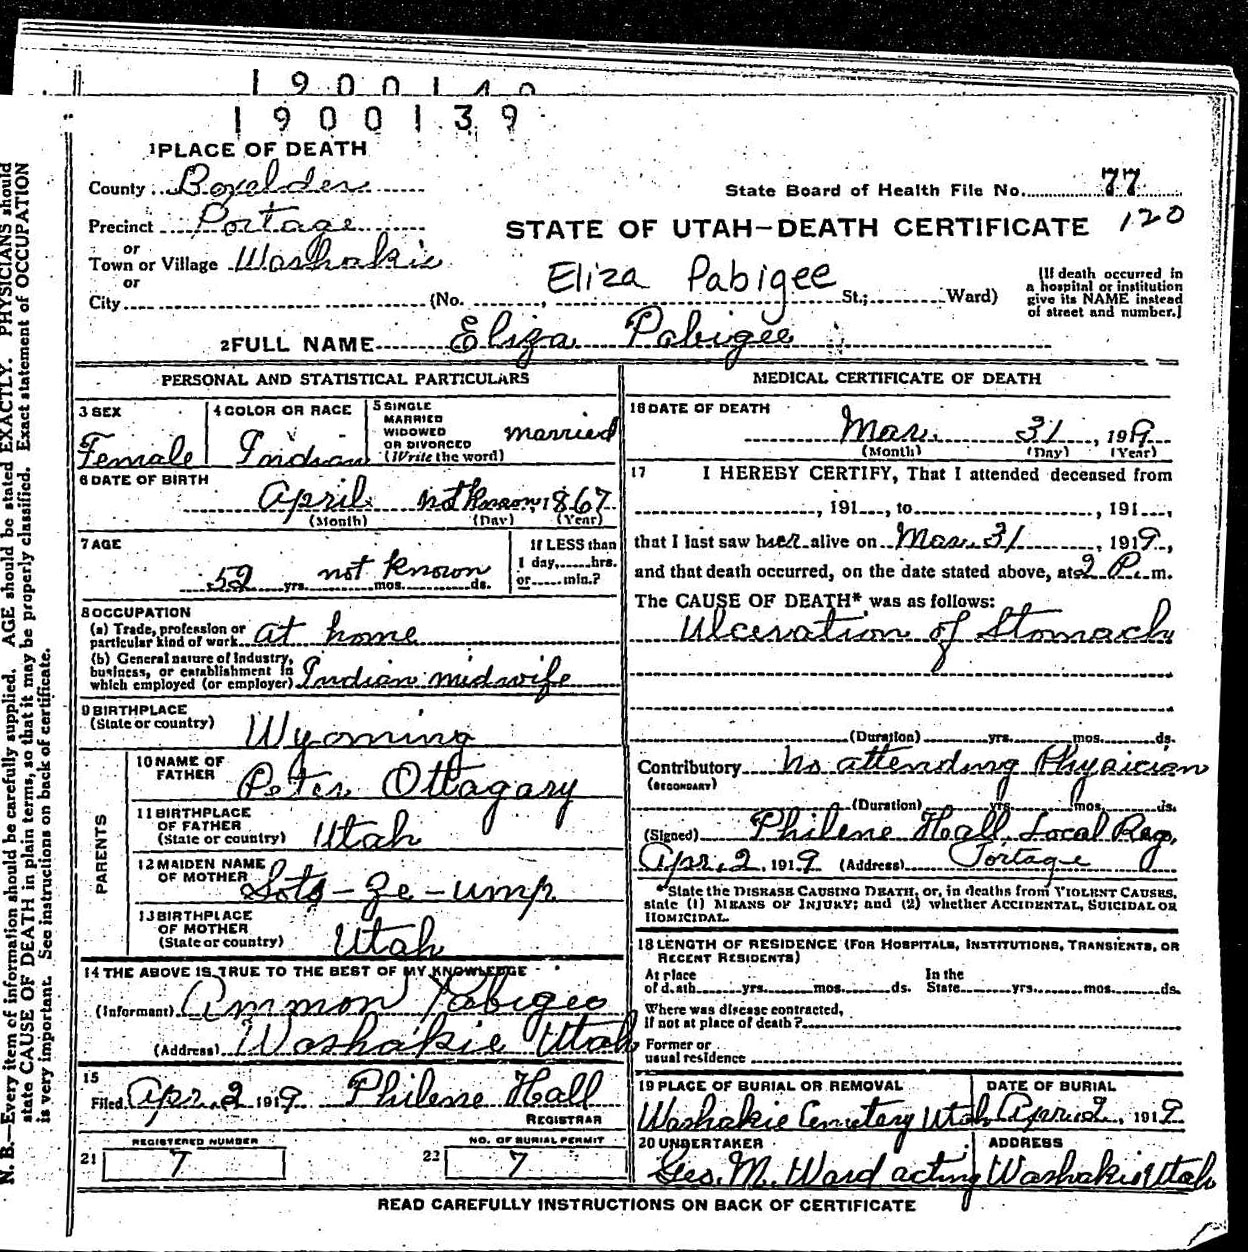 1 9 0 0 1 4 0
1 9 0 0 1 3 9
1 PLACE OF DEATH
County Boxelder
State Board of Health File No. 77
Precinct Portage
STATE OF UTAH—DEATH CERTIFICATE 120
or
Town or Village Washakie
or
Eliza Pabigee
City (No. , St.; Ward)
(If death occurred in
a hospital or institution
give its NAME instead
of street and number.]
2 FULL NAME Eliza Pabigee
PERSONAL AND STATISTICAL PARTICULARS
3 SEX
Female
4 COLOR OR RACE
Indian
5 SINGLE
MARRIED
WIDOWED
OR DIVORCED
(Write the word)
married
6 DATE OF BIRTH
April not known, 1867
(Month) (Day) (Year)
7 AGE
52 yrs. not known mos. ds.
If LESS than
1 day, hrs.
or min.?
8 OCCUPATION
(a) Trade, profession or
particular kind of work at home
(b) General nature of Industry,
business, or establishment in
which employed (or employer) Indian midwife
9 BIRTHPLACE
(State or country)
Wyoming
PARENTS
10 NAME OF
FATHER
Peter Ottagary
11 BIRTHPLACE
OF FATHER
(State or country)
Utah
12 MAIDEN NAME
OF MOTHER
Sots-ze-ump
13 BIRTHPLACE
OF MOTHER
(State or country)
Utah
14 THE ABOVE IS TRUE TO THE BEST OF MY KNOWLEDGE
(Informant) Ammon Pabigee
(Address) Washakie Utah
15
Filed Apr. 2 1919 Philene Hall
REGISTRAR
REGISTERED NUMBER
21 7
NO. OF BURIAL PERMIT
22 7
MEDICAL CERTIFICATE OF DEATH
16 DATE OF DEATH
Mar. 31, 1919
(Month) (Day) (Year)
17 I HEREBY CERTIFY, That I attended deceased from
, 191 , to , 191 ,
that I last saw her alive on Mar. 31, 1919,
and that death occurred, on the date stated above, at 2 P. m.
The CAUSE OF DEATH* was as follows:
Ulceration of Stomach
(Duration) yrs. mos. ds.
Contributory No attending Physician
(SECONDARY)
(Duration) yrs. mos. ds.
(Signed) Philene Hall Local Reg.
Apr. 2, 1919 (Address) Portage
*State the DISEASE CAUSING DEATH, or, in deaths from VIOLENT CAUSES,
state (1) MEANS OF INJURY; and (2) whether ACCIDENTAL, SUICIDAL OR
HOMICIDAL.
18 LENGTH OF RESIDENCE (FOR HOSPITALS, INSTITUTIONS, TRANSIENTS, OR
RECENT RESIDENTS)
At place
of death yrs. mos. ds.
In the
State yrs. mos. ds.
Where was disease contracted,
if not at place of death?
Former or
usual residence
19 PLACE OF BURIAL OR REMOVAL
Washakie Cemetery Utah
DATE OF BURIAL
Apr. 2, 1919
20 UNDERTAKER
Geo. M. Ward acting
ADDRESS
Washakie Utah
READ CAREFULLY INSTRUCTIONS ON BACK OF CERTIFICATE
N. B.—Every item of information should be carefully supplied. AGE should be stated EXACTLY. PHYSICIANS should
state CAUSE OF DEATH in plain terms, so that it may be properly classified. Exact statement of OCCUPATION
is very important. See instructions on back of certificate.